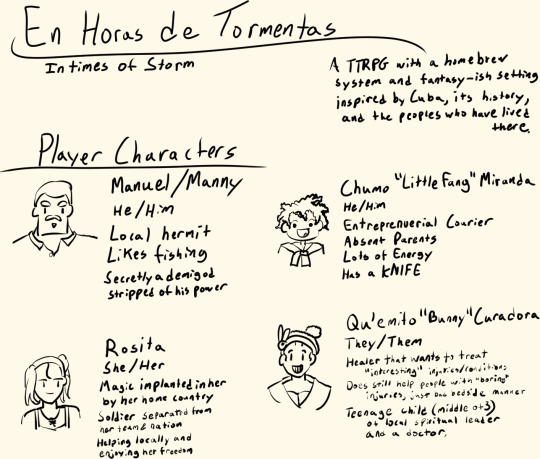 En Horas de Tormentas
In times of Storm
A TTRPG with a homebrew
system and fantasy-ish setting
inspired by Cuba, its history,
and the peoples who have lived
there.
Player Characters
Manuel/Manny
He/Him
Local hermit
Likes fishing
Secretly a demigod
stripped of his power
Chumo "Little Fang" Miranda
He/Him
Entreprenuerial Courier
Absent Parents
Lots of Energy
Has a KNIFE
Rosita
She/Her
Magic implanted in her
by her home country
Soldier separated from
her team & nation
Helping locally and
enjoying her freedom
Qu'emito "Bunny" Curadora
They/Them
Healer that wants to treat
"interesting" injuries/conditions
Does still help people with "boring"
injuries, just bad bedside manner
Teenage child (middle of 3)
of local spiritual leader
and a doctor.